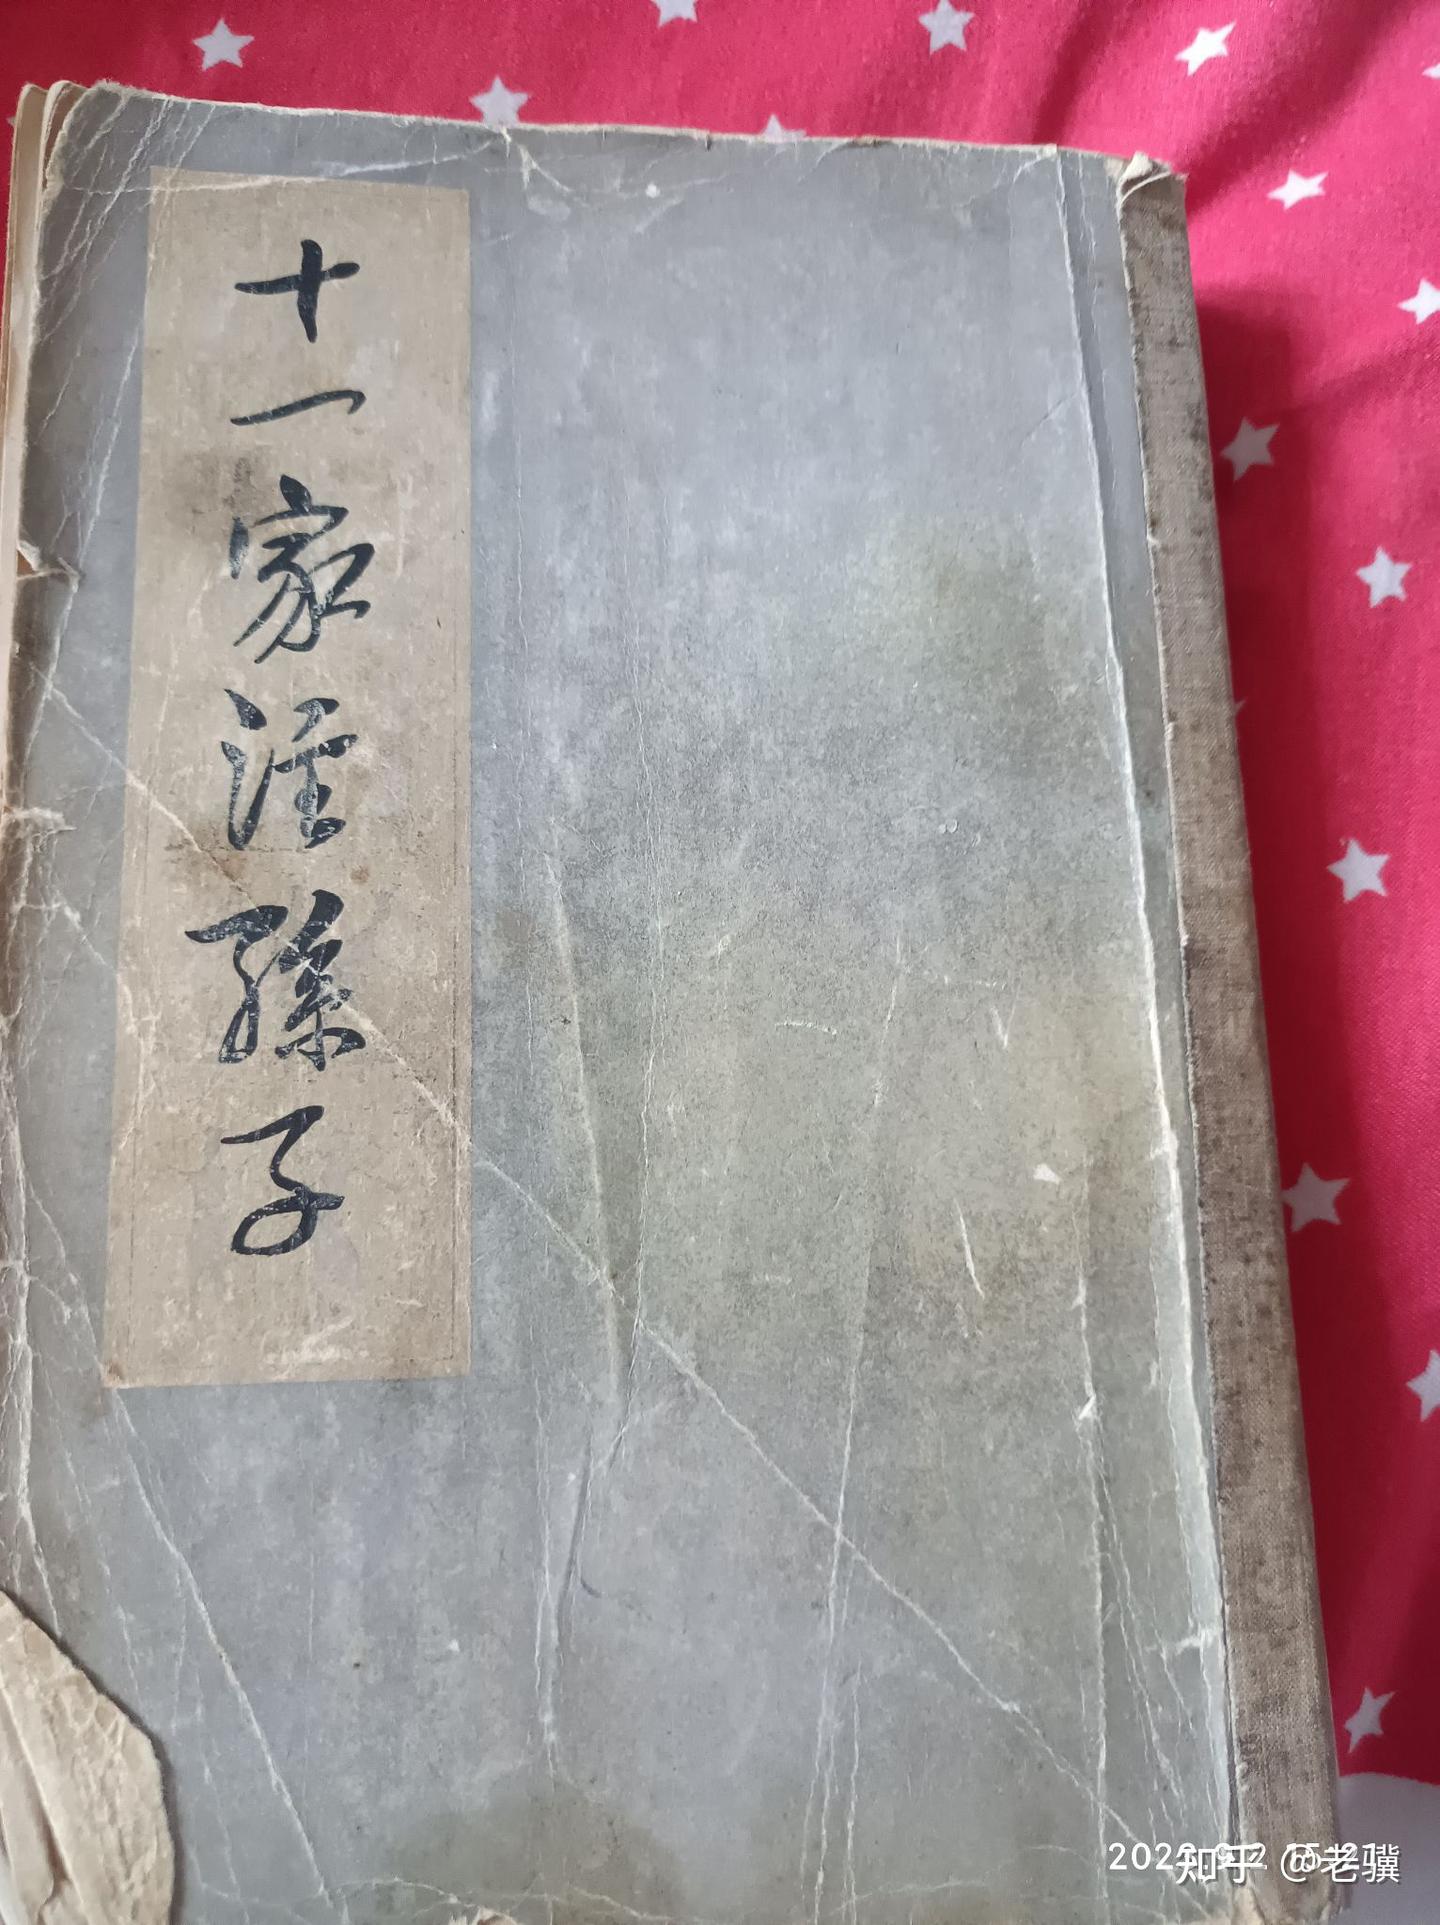 十一家注孫子
知乎 @老骥